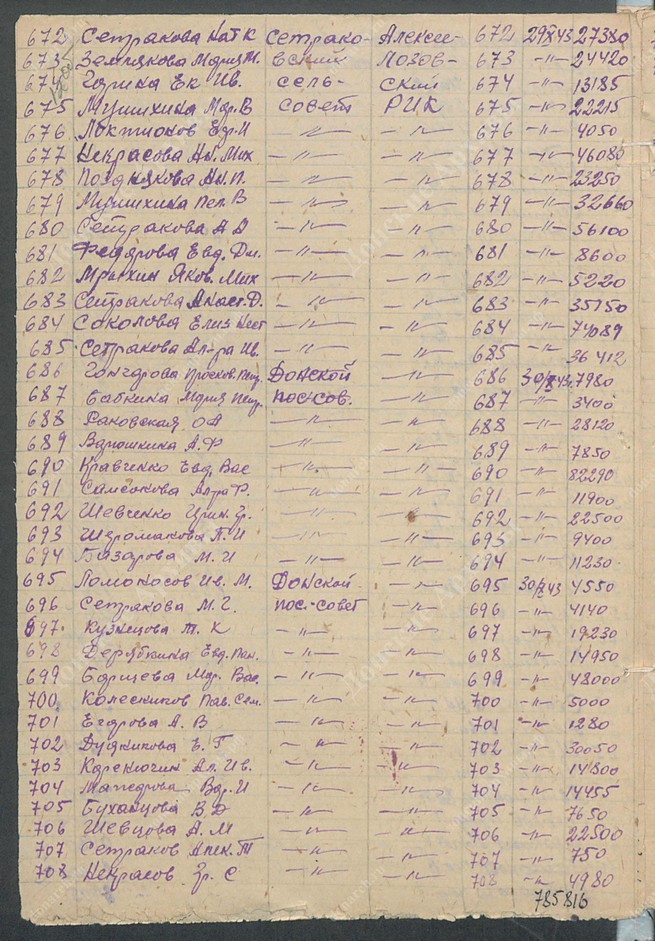 672 Сетракова Нат К Сетрако- Алексе- 672 29/X 43 27380
673 Землякова Мария М. вский Лозов- 673 -"- 24420
674 Горина Ек Ив. сель- ский 674 -"- 13185
675 Мушихина Мар. В совет РИК 675 -"- 22215
676 Локтионов Ед. И -"- -"- 676 -"- 4050
677 Некрасова Ан. Мих -"- -"- 677 -"- 46080
678 Позднякова Ан. П. -"- -"- 678 -"- 23250
679 Мушихина Пел. В -"- -"- 679 -"- 32660
680 Сетракова А Д -"- -"- 680 -"- 56100
681 Федярова Евд. Дм. -"- -"- 681 -"- 8600
682 Мрыхин Яков. Мих -"- -"- 682 -"- 5220
683 Сетракова Анаст. Д. -"- -"- 683 -"- 35150
684 Соколова Елиз Нест -"- -"- 684 -"- 74089
685 Сетракова Ал-ра Ив. -"- -"- 685 -"- 36412
686 Гончарова Просков. Пет. Донской -"- 686 30/X 43. 7980
687 Бабкина Мария Петр. пос-сов. -"- 687 -"- 3400
688 Раковская О А -"- -"- 688 -"- 28120
689 Варюшкина А. Ф -"- -"- 689 -"- 7850
690 Кравченко Евд. Вас -"- -"- 690 -"- 82290
691 Самсонова Ал-ра Ф. -"- -"- 691 -"- 11900
692 Шевченко Ирин. Гр. -"- -"- 692 -"- 22500
693 Шероманова П. И -"- -"- 693 -"- 9400
694 Базарова М. И -"- -"- 694 -"- 11230
695 Ломоносов Ив. М. Донской -"- 695 30/X 43 4550
696 Сетракова М. Г. пос-совет -"- 696 -"- 4140
697 Кузнецова Т. К -"- -"- 697 -"- 19230
698 Дерябкина Евд. Пан. -"- -"- 698 -"- 14950
699 Борщева Мар. Вас. -"- -"- 699 -"- 48000
700 Колесников Пав. Сем. -"- -"- 700 -"- 5000
701 Егорова А. В -"- -"- 701 -"- 1280
702 Дудникова Е. Г -"- -"- 702 -"- 30050
703 Карекючин Ал. Ив. -"- -"- 703 -"- 14800
704 Мажарова Вар. И -"- -"- 704 -"- 14455
705 Буханцова В Д -"- -"- 705 -"- 7650
706 Шевцова А. М -"- -"- 706 -"- 22500
707 Сетраков Алек. Т -"- -"- 707 -"- 750
708 Некрасов Гр. С -"- -"- 708 -"- 4980
785816